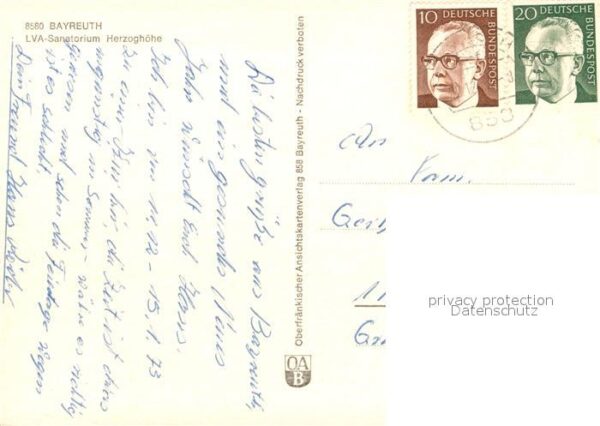 8580 BAYREUTH
LVA-Sanatorium Herzoghöhe
Die besten Grüße aus Bayreuth,
und ein gesundes Neues
Jahr wünscht Euch Hans.
Ich bin vom 11.12 - 15.1.73
zu einer Kur hier, die Zeit ist etwas
ungünstig, im Sommer wäre es richtig
gewesen, und schon die Feiertage wegen
ist es schlecht
Dein Freund Hans
Oberfränkischer Ansichtskartenverlag 858 Bayreuth - Nachdruck verboten
OA
B
10
DEUTSCHE
BUNDESPOST
20
DEUTSCHE
BUNDESPOST
858
An
Fam.
privacy protection
Datenschutz